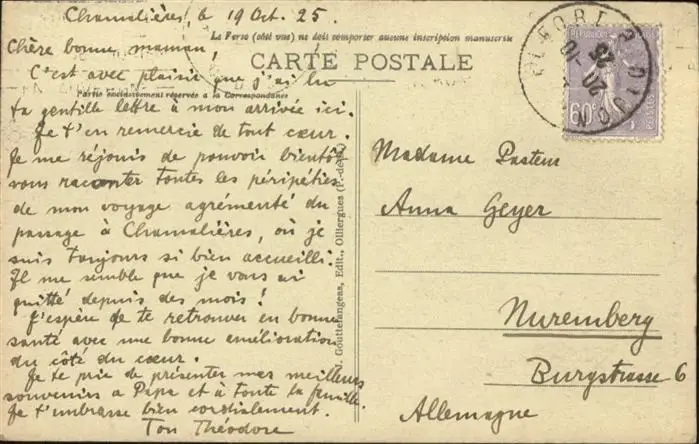 Chamalières, le 19 Oct. 25.
Le Verso (côté vue) ne doit comporter aucune inscription manuscrite
CARTE POSTALE
Partie exclusivement réservée à la Correspondance
Chère bonne maman,
C'est avec plaisir que j'ai lu
ta gentille lettre à mon arrivée ici.
Je t'en remercie de tout cœur.
Je me réjouis de pouvoir bientôt
vous raconter toutes les péripéties
de mon voyage agrémenté du
passage à Chamalières, où je
suis toujours si bien accueilli.
Il me semble que je vous ai
quitté depuis des mois !
J'espère de te retrouver en bonne
santé avec une bonne amélioration
du côté du cœur.
Je te prie de présenter mes meilleurs
souvenirs a Papa et à toute la famille.
Je t'embrasse bien cordialement.
Ton Théodore
Gouttefangeas, Edit., Olliergues (P.-de-D.)
60c
DIJON
20 -10
25
Madame Pasteur
Anna Geyer
Nuremberg
Burgstrasse 6
Allemagne